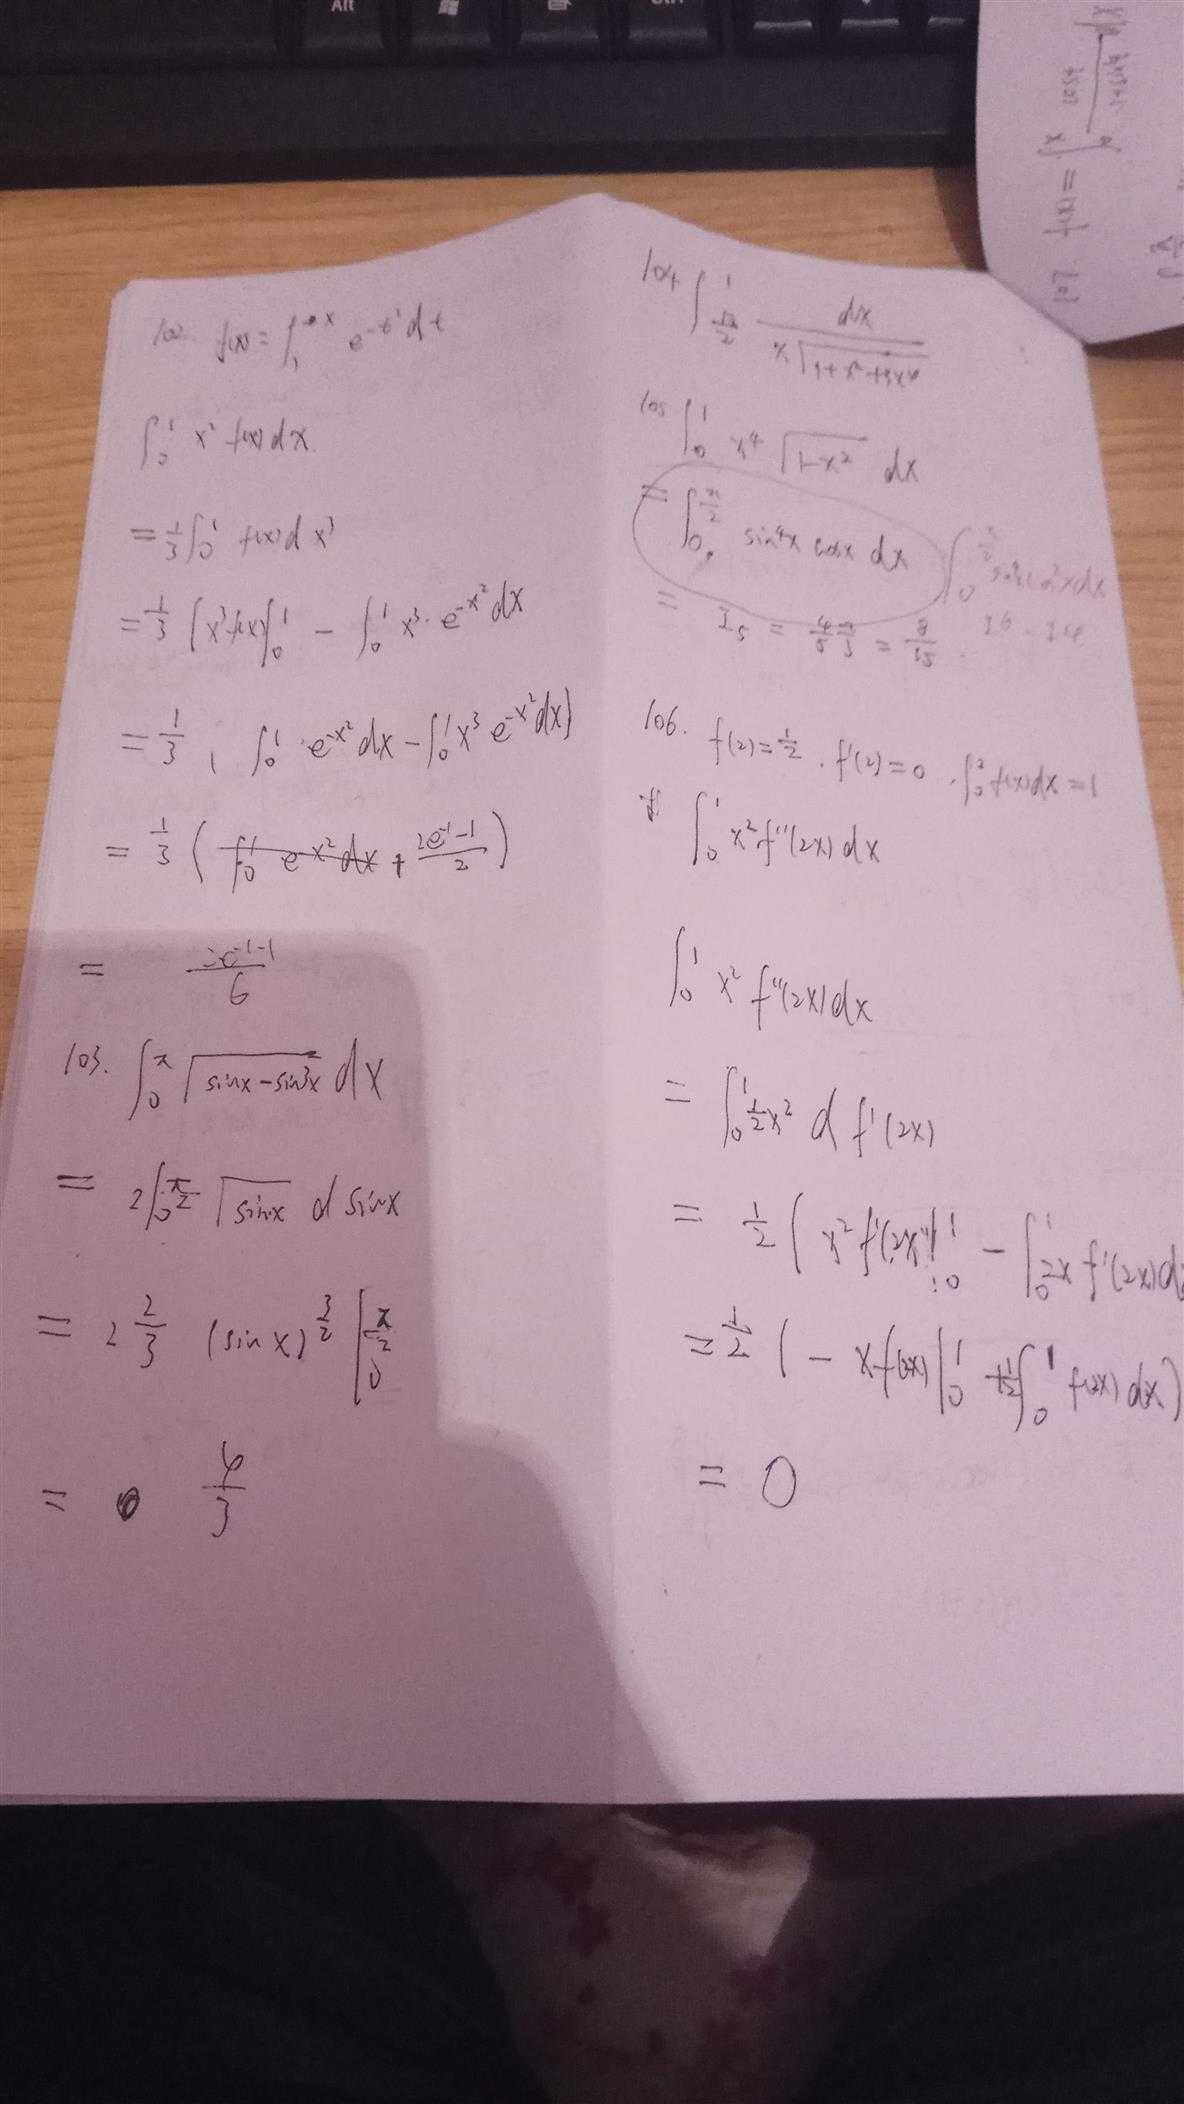 Alt
102. f(x) = ∫₁ˣ e^(-t²) dt
∫₀¹ x² f(x) dx
= 1/3 ∫₀¹ f(x) d x³
= 1/3 [x³ f(x)|₀¹ - ∫₀¹ x³ · e^(-x²) dx
= 1/3 ( ∫₀¹ e^(-x²) dx - ∫₀¹ x³ e^(-x²) dx]
= 1/3 ( ∫₀¹ e^(x²) dx + (2e⁻¹-1)/2 )
=
103. ∫₀^π √(sinx - sin³x) dx
= 2∫₀^(π/2) √(sinx) d sinx
= 2 2/3 (sin x)^(3/2) |₀^(π/2)
= 4/3
104 ∫ dx
105 ∫₀¹ x⁴ √(1-x²) dx
= ∫₀^(π/2) sin⁴x cosx dx
= I₅ = 4/5 2/3 = 8/15
I6 - I4
106. f(2) = 1/2 , f'(2) = 0 , ∫₀² f(x) dx = 1
∫₀¹ x² f''(2x) dx
∫₀¹ x² f''(2x) dx
= ∫₀¹ 1/2 x² d f'(2x)
= 1/2 ( x² f'(2x)|₀¹ - ∫₀¹ 2x f'(2x) d
= 1/2 ( - x f(2x)|₀¹ + 1/2 ∫₀¹ f(2x) dx )
= 0
101 f(x) = ∫